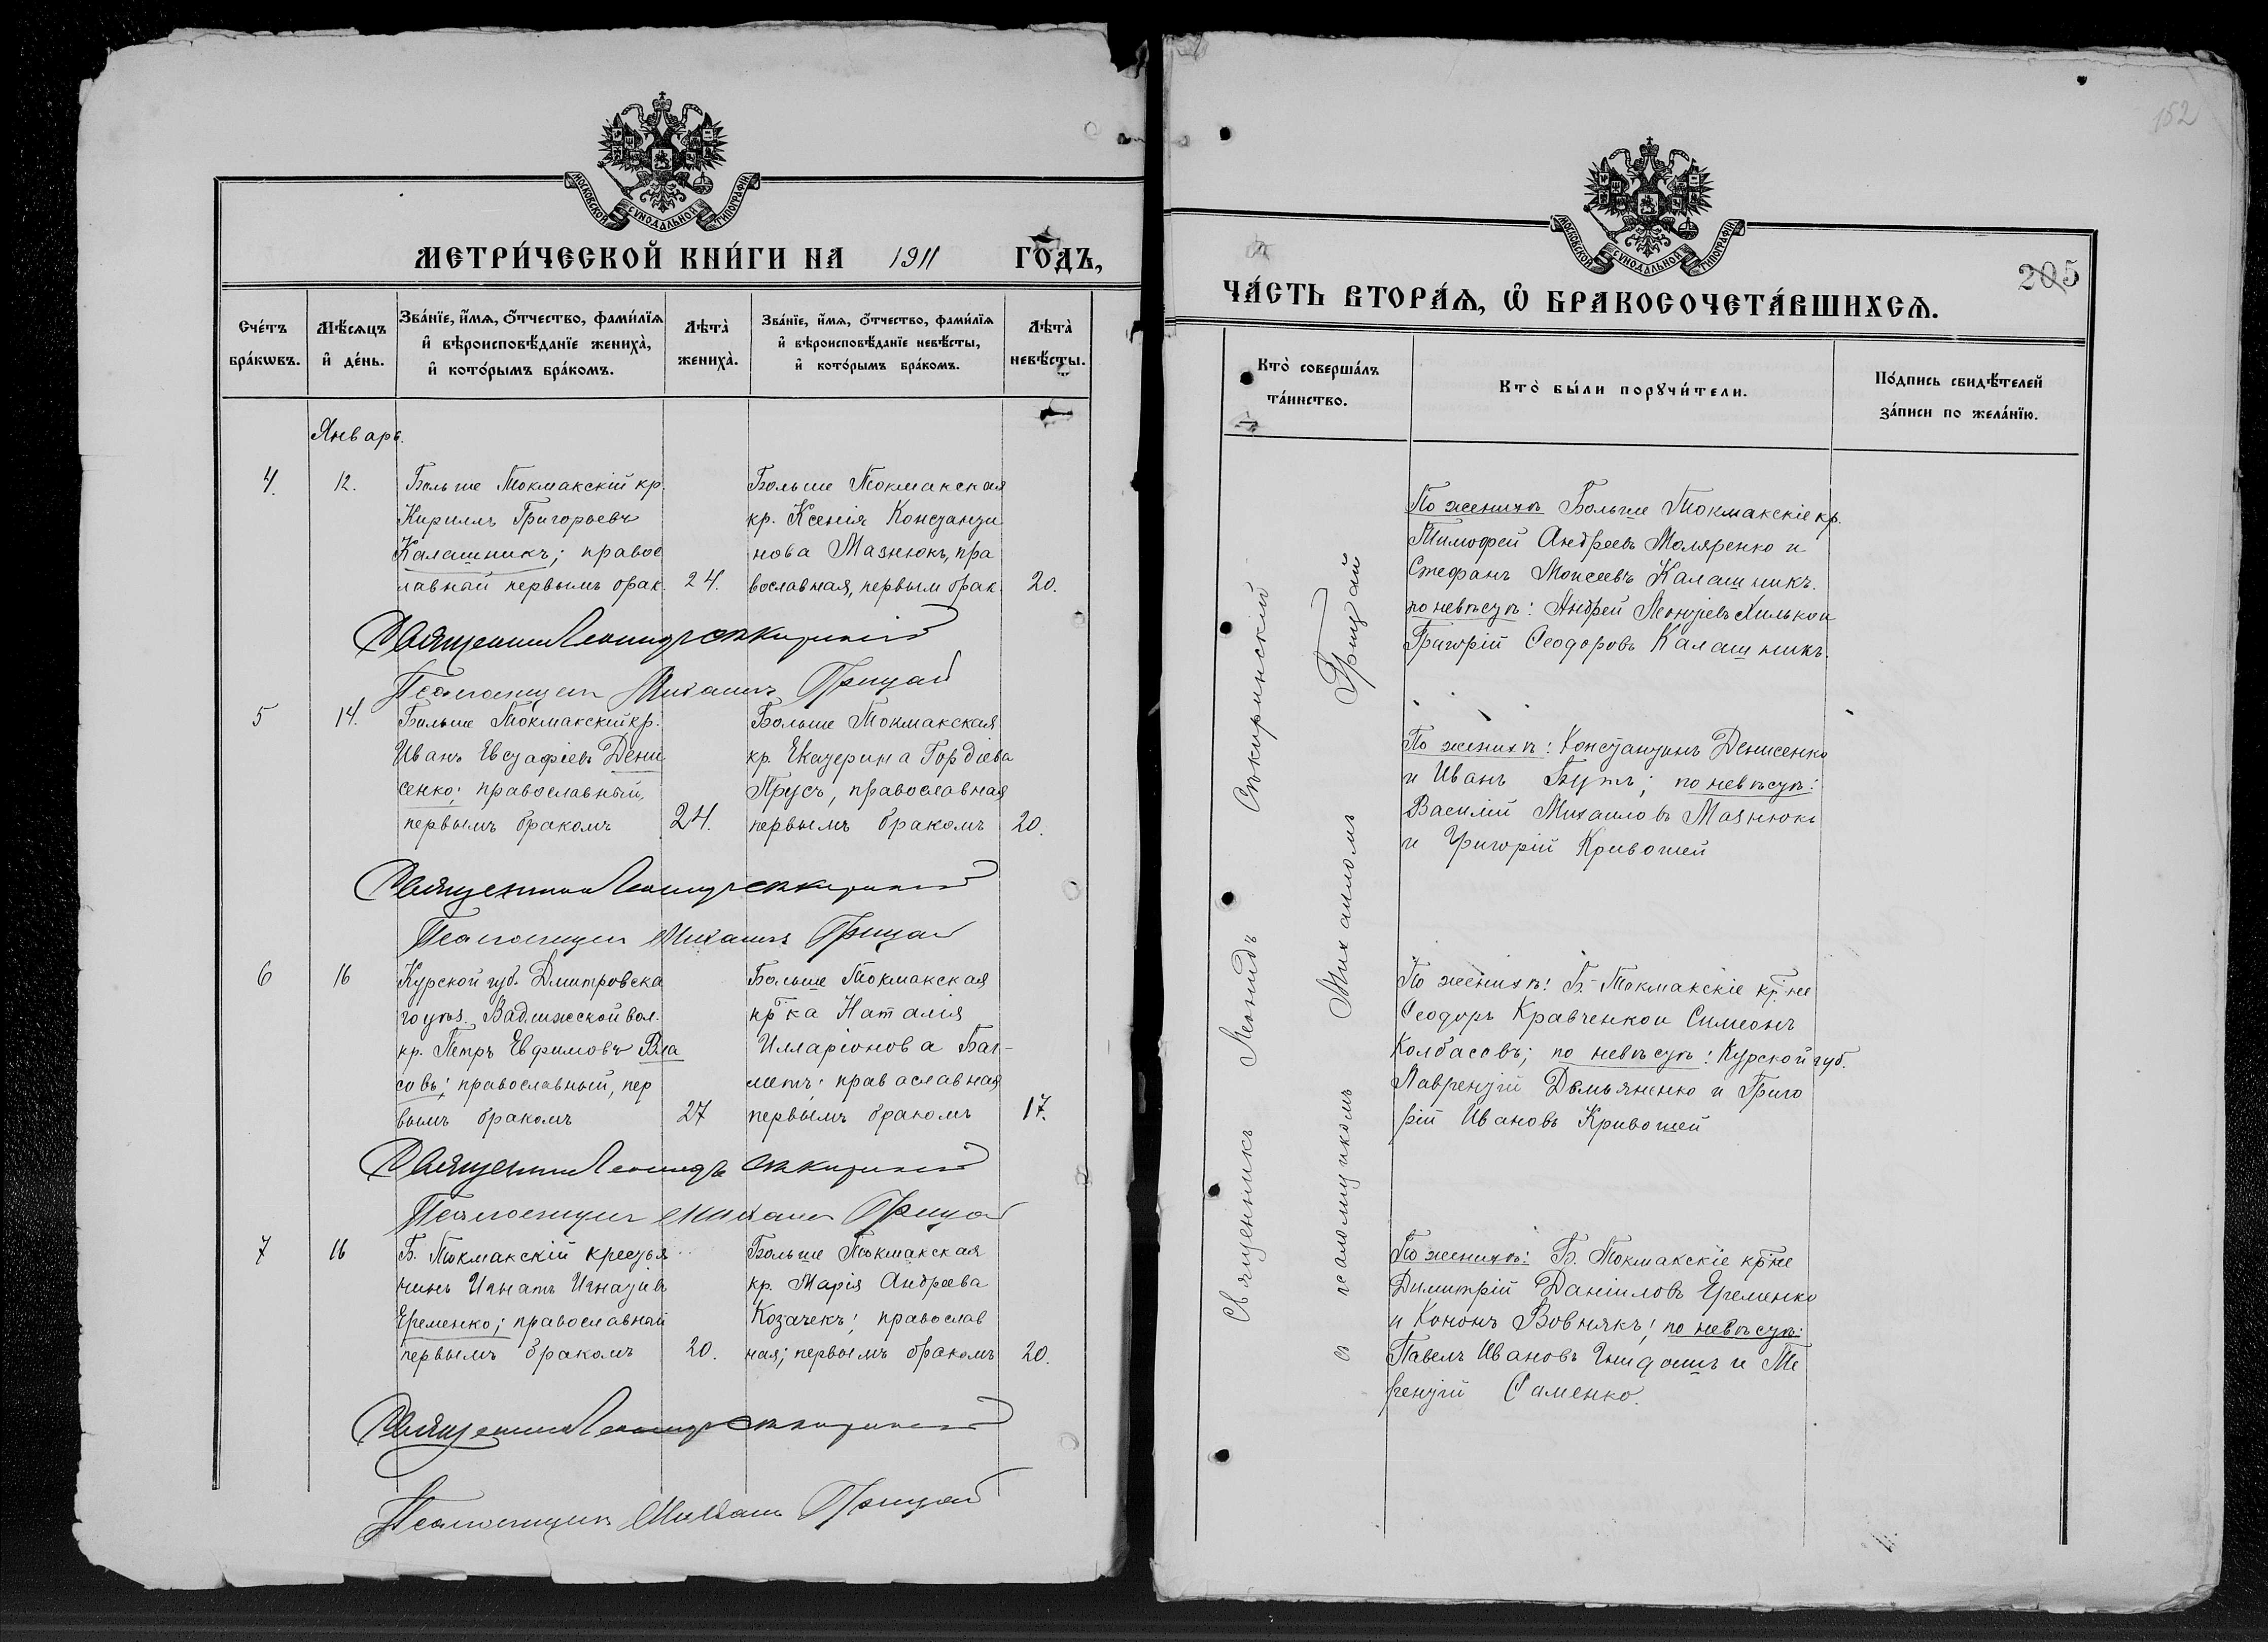 МОСКОВСКОЙ СѴНОДАЛЬНОЙ ТИПОГРАФІИ
МЕТРИ́ЧЕСКОЙ КНИ́ГИ НА 1911 ГО́ДЪ,
Сче́тъ бра́кѡвъ.
Мѣ́сѧцъ и҆ де́нь.
Зва́нїе, и҆́мѧ, ѻ҆́тчество, фами́лїѧ
и҆ вѣроисповѣ́данїе жениха̀,
и҆ кото́рымъ бра́комъ.
Лѣта̀ жениха̀.
Зва́нїе, и҆́мѧ, ѻ҆́тчество, фами́лїѧ
и҆ вѣроисповѣ́данїе невѣ́сты,
и҆ кото́рымъ бра́комъ.
Лѣта̀ невѣ́сты.
Январь.
4. 12.
Больше Токмакскій кр.
Кириллъ Григорьевъ
Калашникъ; правос
лавный первымъ брак. 24.
Больше Токмакская
кр. Ксенія Константи
нова Мазнюкъ, пра
вославная, первым брак. 20.
Священникъ Леонидъ Сѣкиринскій
Псаломщикъ Михаилъ Грицай
5 14.
Больше Токмакский кр.
Иванъ Евстафіевъ Дени
сенко; православный,
первымъ бракомъ 24.
Больше Токмакская
кр. Екатерина Гордіева
Прусъ, православная
первымъ бракомъ 20.
Священникъ Леонидъ Сѣкиринскій
Псаломщикъ Михаилъ Грицай
6 16
Курской губ. Дмитровска
го уѣз. вол.
кр. Петръ Евфимовъ Вла
совъ; православный, пер
вымъ бракомъ 27
Больше Токмакская
кр-ка Наталія
Илларіонова Баг-
метъ; православная
первымъ бракомъ 17.
Священникъ Леонидъ Сѣкиринскій
Псаломщикъ Михаилъ Грицай
7 16
Б. Токмакскій крестья
нинъ Игнатъ Игнатіевъ
Еременко; православный
первымъ бракомъ 20.
Больше Токмакская
кр. Марія Андреева
Козачекъ; православ
ная; первымъ бракомъ 20.
Священникъ Леонидъ Сѣкиринскій
Псаломщикъ Михаилъ Грицай
152
МОСКОВСКОЙ СѴНОДАЛЬНОЙ ТИПОГРАФІИ
205
ЧА́СТЬ ВТОРА́Ѧ, Ѡ҆ БРАКОСОЧЕТА́ВШИХСѦ.
Кто̀ соверша́лъ
та́инство.
Кто̀ бы́ли порꙋчи́тели.
По́дпись свидѣ́телей
за́писи по жела́нїю.
Священникъ Леонидъ Сѣкиринскій
съ псаломщикомъ Михаиломъ Грицай
По женихѣ Больше Токмакскіе кр.
Тимофей Андреевъ Моляренко и
Стефанъ Моисеевъ Калашникъ.
по невѣстѣ: Андрей Леонтіевъ Хилько и
Григорій Ѳеодоровъ Калашникъ.
По женихѣ: Константинъ Денисенко
и Иванъ Бутъ; по невѣстѣ:
Василій Михаиловъ Мазнюкъ
и Григорій Кривошей
По женихѣ: Б.-Токмакскіе кр-не
Ѳеодоръ Кравченко и Симеонъ
Колбасовъ; по невѣстѣ: Курской губ.
Лаврентій Демьяненко и Григо
рій Ивановъ Кривошей
По женихѣ: Б. Токмакскіе кр-не
Димитрій Даніиловъ Еременко
и Кононъ Вовнякъ; по невѣстѣ:
Павелъ Ивановъ и Те
рентій Саменко.